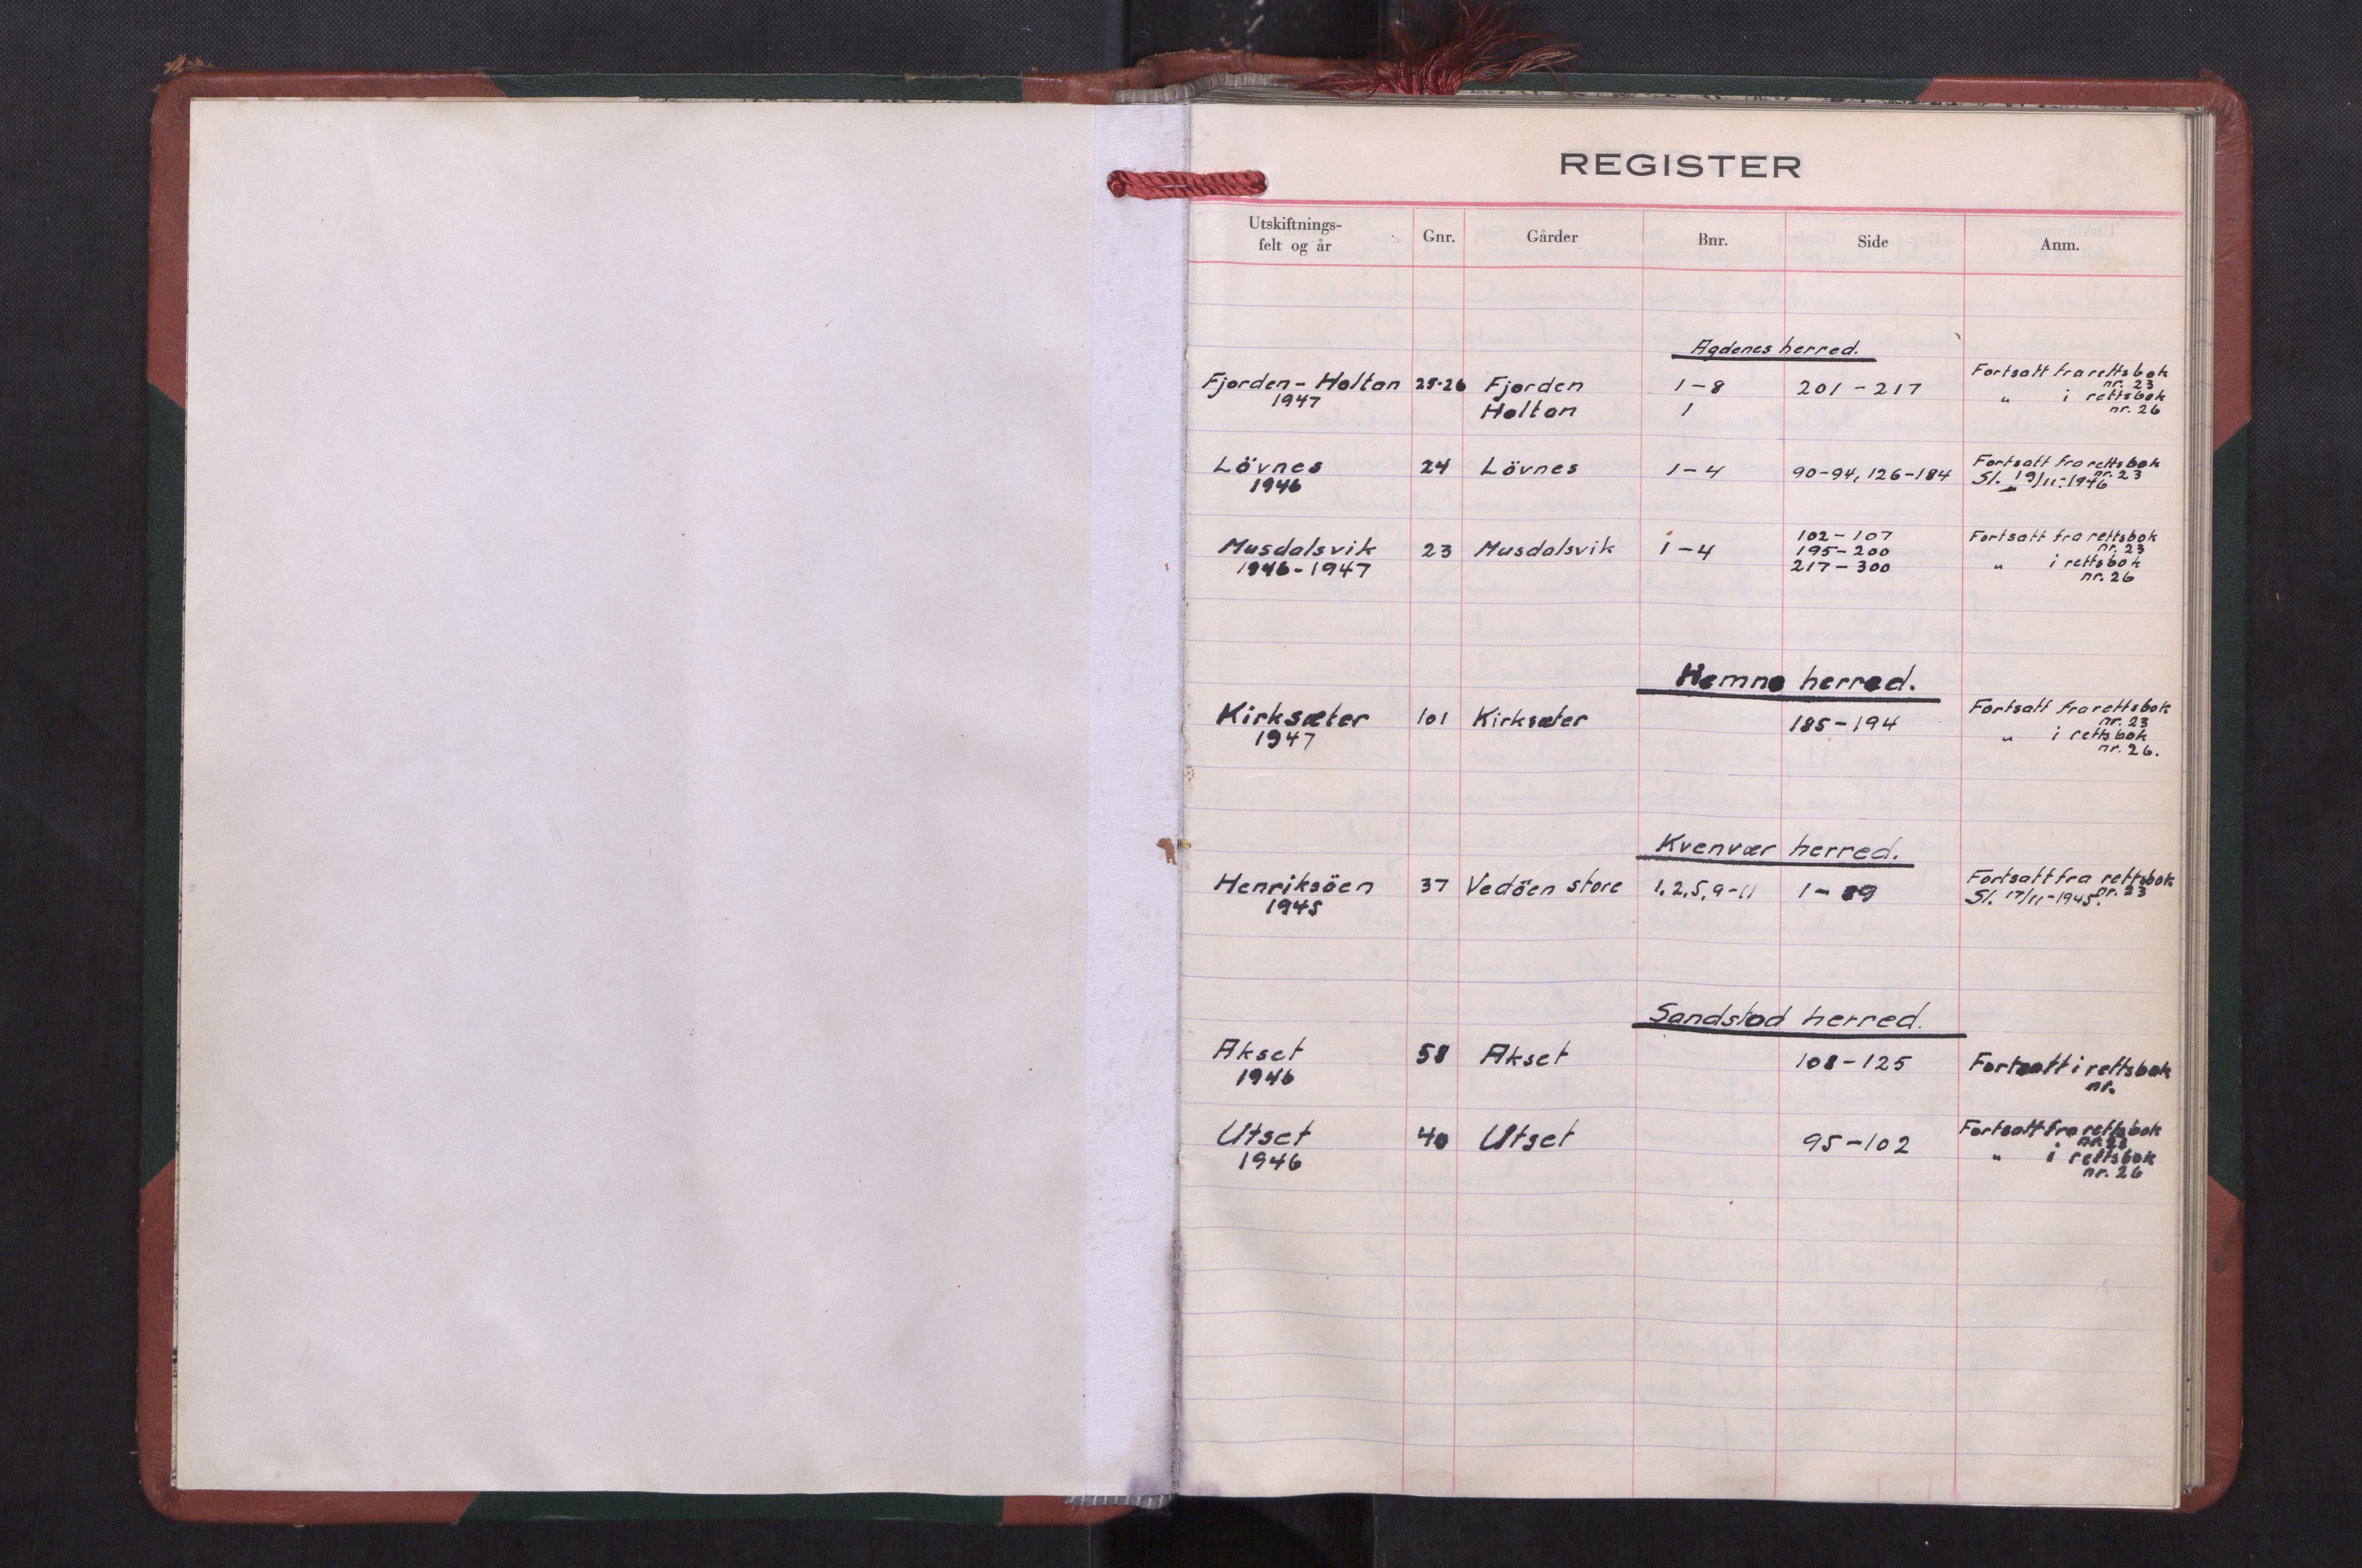 REGISTER
Utskiftnings-
felt og år
Gnr.
Gårder
Bnr.
Side
Anm.
Agdenes herred.
Fjorden - Holtan 25-26 Fjorden 1-8 201 - 217 Fortsatt fra rettsbok
nr. 23
1947 Holtan 1 " i rettsbok
nr. 26
Lövnes 24 Lövnes 1-4 90-94, 126-184 Fortsatt fra rettsbok
nr. 23
1946 Sl. 19/11-1946
Musdalsvik 23 Musdalsvik 1-4 102-107 Fortsatt fra rettsbok
195-200 nr. 23
1946-1947 217-300 " i rettsbok
nr. 26
Hemne herred.
Kirksæter 101 Kirksæter 185-194 Fortsatt fra rettsbok
nr. 23
1947 " i rettsbok
nr. 26.
Kvenvær herred.
Henriksöen 37 Vedöen store 1,2,5,9-11 1-89 Fortsatt fra rettsbok
nr. 23
1945 Sl. 17/11-1945.
Sandstad herred.
Akset 58 Akset 108-125 Fortsatt i rettsbok
1946 nr.
Utset 40 Utset 95-102 Fortsatt fra rettsbok
nr. 23
1946 " i rettsbok
nr. 26